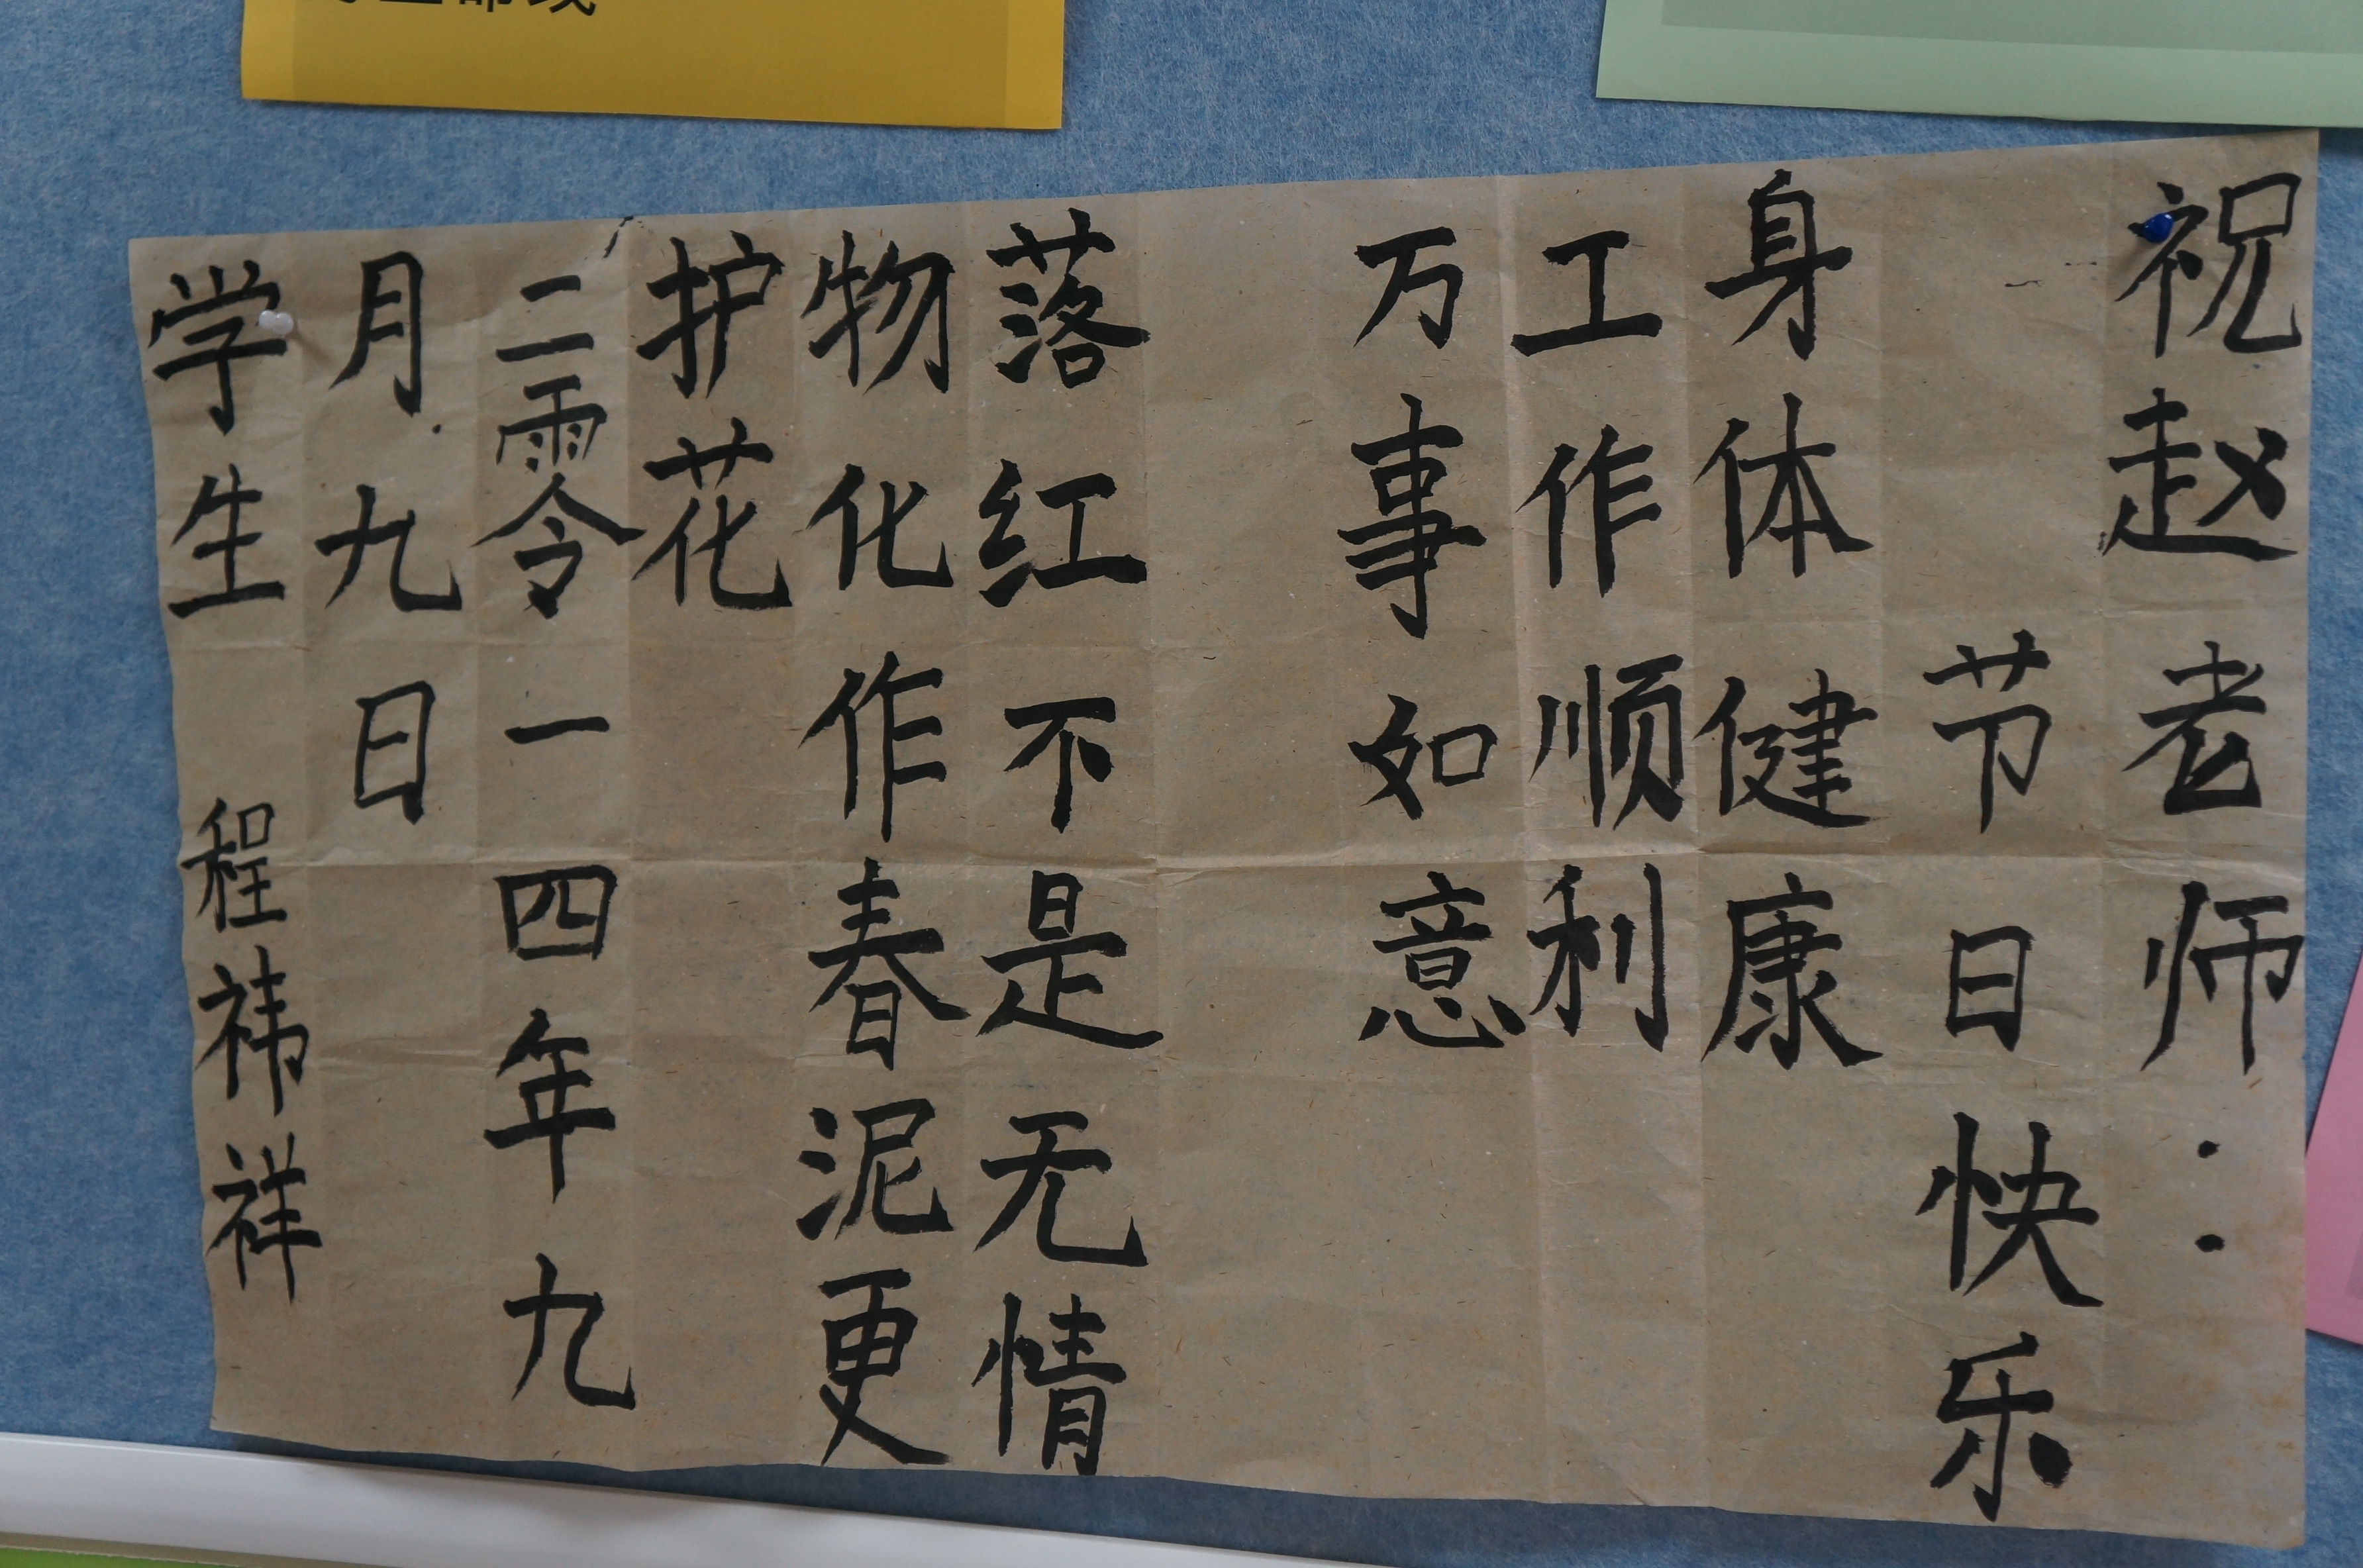 祝赵老师：
节日快乐
身体健康
工作顺利
万事如意
落红不是无情
物化作春泥更
护花
二零一四年九
月九日
学生 程祎祥